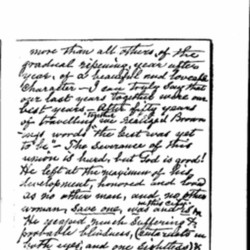 more than all others, of the
gradual ripening, year after
year, of a beautiful and loveable
Character – I can truly say that
our last years together were our
best years – After fifty years
of travelling together we realized Brown-
-ing's words "the best was yet
to be" – The severance of this
union is hard, but God is good!
He left at the maximum of his
development, honored and loved
as no other man, and no other
woman, save one, was
He escaped much suffering &
probable blindness, (cataracts in
both eyes, and one sightless) &